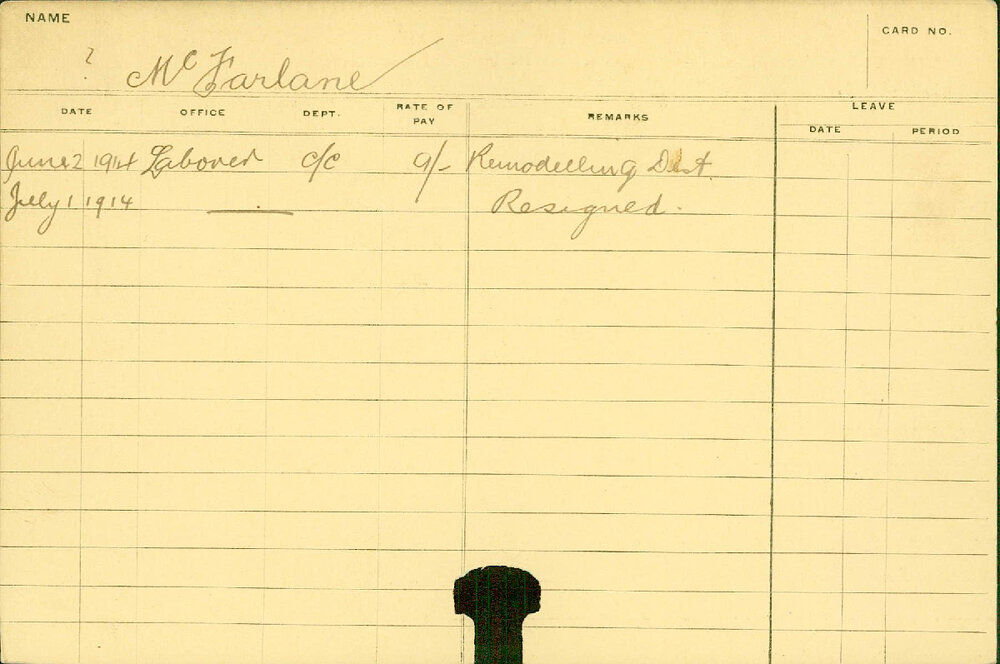 NAME
CARD NO.
? McFarlane
DATE OFFICE DEPT. RATE OF PAY REMARKS LEAVE
DATE PERIOD
June 2 1914 Laborer C/C 9/- Remodelling Dist.
July 1 1914 — Resigned.